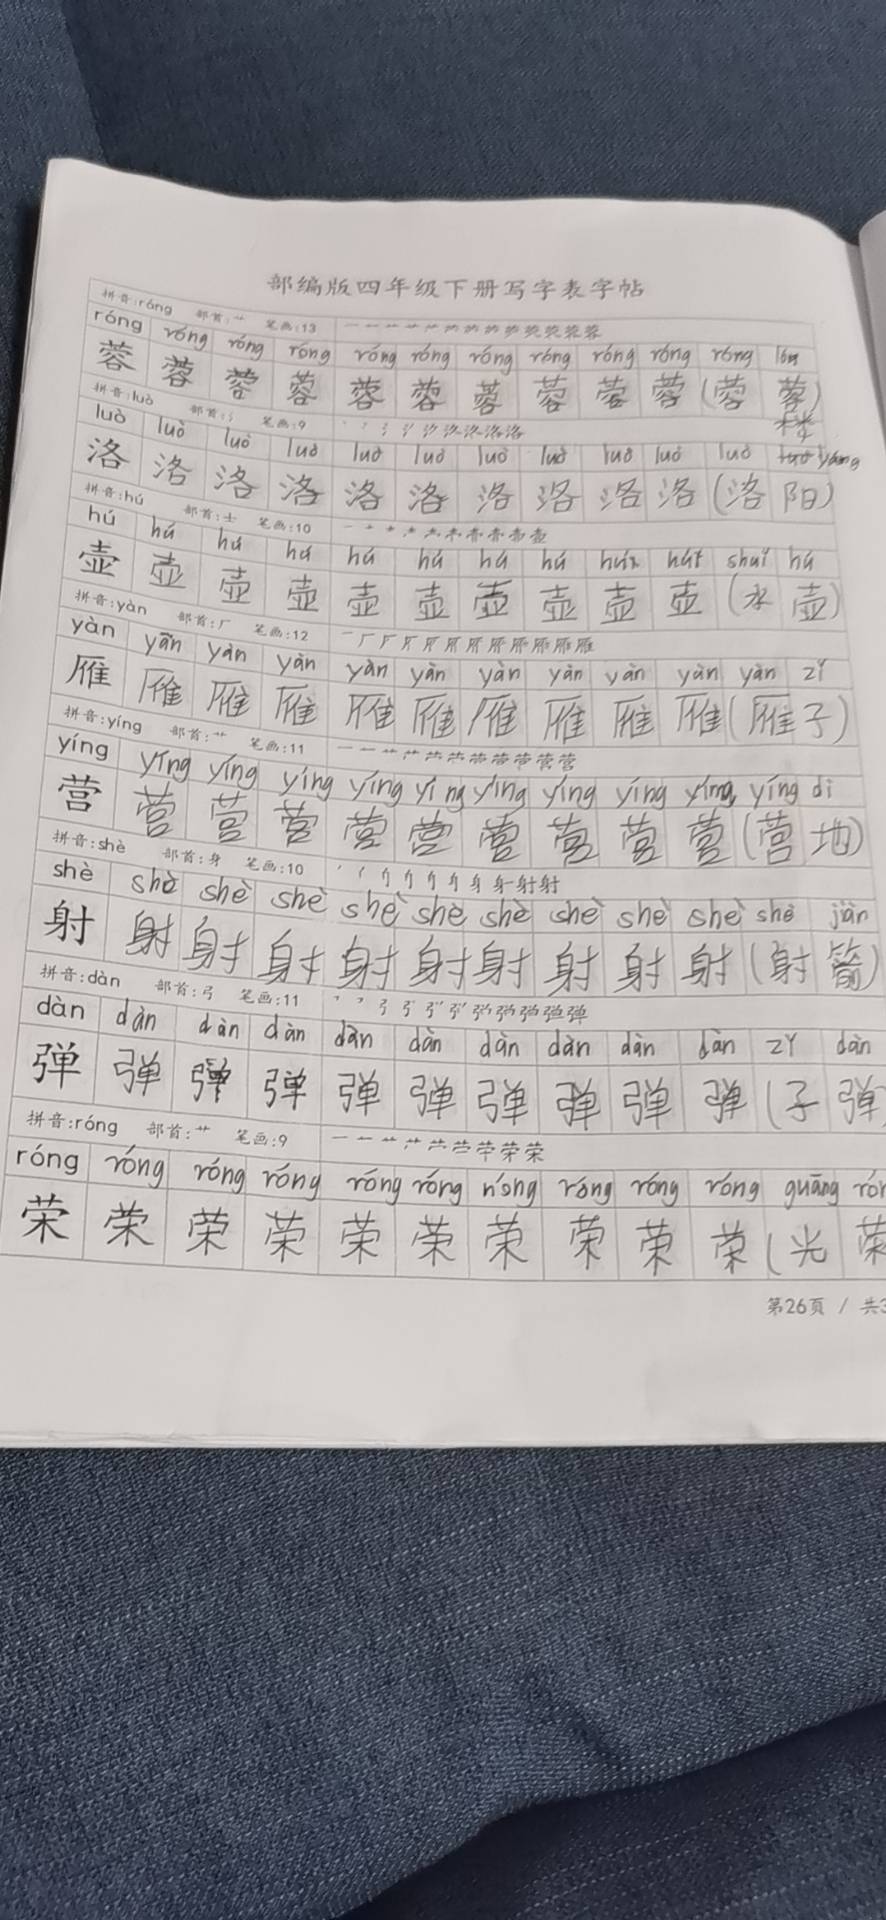 部编版四年级下册写字表字帖
拼音:róng 部首:艹 笔画:13
róng róng róng róng róng róng róng róng róng róng róng
蓉 蓉 蓉 蓉 蓉 蓉 蓉 蓉 蓉 蓉 (蓉 蓉)
楼
拼音:luò 部首:氵 笔画:9
luò luò luò luò luò luò luò luò luò luò luò yáng
洛 洛 洛 洛 洛 洛 洛 洛 洛 洛 (洛 阳)
拼音:hú 部首:士 笔画:10
hú hú hú hú hú hú hú hú shuǐ hú
壶 壶 壶 壶 壶 壶 壶 壶 壶 壶 (水 壶)
拼音:yàn 部首:厂 笔画:12
yàn yàn yàn yàn yàn yàn yàn yàn yàn yàn yàn zǐ
雁 雁 雁 雁 雁 雁 雁 雁 雁 雁 (雁 子)
拼音:yíng 部首:艹 笔画:11
yíng yíng yíng yíng yíng yíng yíng yíng yíng yíng yíng di
营 营 营 营 营 营 营 营 营 营 (营 地)
拼音:shè 部首:身 笔画:10
shè shè shè shè shè shè shè shè shè shè shè jiàn
射 射 射 射 射 射 射 射 射 射 (射 箭)
拼音:dàn 部首:弓 笔画:11
dàn dàn dàn dàn dàn dàn dàn dàn dàn dàn zǐ dàn
弹 弹 弹 弹 弹 弹 弹 弹 弹 弹 (子 弹
拼音:róng 部首:艹 笔画:9
róng róng róng róng róng róng róng róng róng róng guāng rón
荣 荣 荣 荣 荣 荣 荣 荣 荣 荣 (光 荣
第26页 / 共3